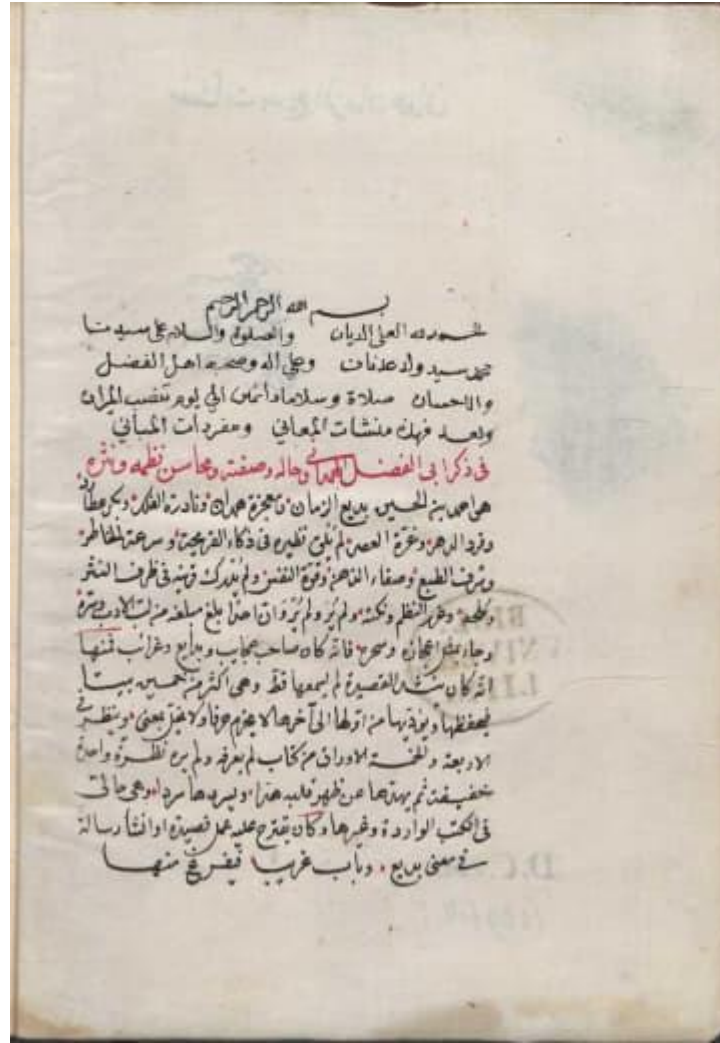 بسم الله الرحمن الرحيم
الحمد لله العلى الديان والصلوة والسلام على سيدنا
محمد سيد ولد عدنان وعلى اله وصحبه اهل الفضل
والاحسان صلاة وسلاما دائمين الي يوم تنصب الميزان
وبعد فهذه منشات المعاني ومفردات المباني
فى ذكر ابى الفضل الهمداني وحاله وصفته ومحاسن نظمه ونثره
هو احمد بن الحسين بديع الزمان ومعجزة همدان ونادرة الفلك وبكر عطارد
وفرد الدهر وغرة العصر لم يلق نظيره فى ذكاء القريحة وسرعة الخاطر
وشرف الطبع وصفاء الذهن وقوة النفس ولم يدرك قرينه فى ظرف النثر
وملحه وغرر النظم ونكته ولم يُرَ ولم يُرْوَ ان احدا بلغ مبلغه من لب الادب وسره
وجاء بمثل اعجازه وسحره فانه كان صاحب عجايب وبدايع وغرائب فمنها
انه كان ينشد القصيدة لم يسمعها قط وهى اكثر من خمسين بيتا
فيحفظها ويوديها من اولها الى آخرها لا يخرم حرفا ولا يخل بمعنى وينظر فى
الاربعة والخمسة الاوراق من كتاب لم يعرفه ولم يره نظرة واحدة
خفيفة ثم يهذها عن ظهر قلبه هذا ويسردها سردا وهى حالته
فى الكتب الواردة وغيرها وكان يقترح عليه عمل قصيدة او انشا رسالة
فى معنى بديع وباب غريب فيفرغ منها